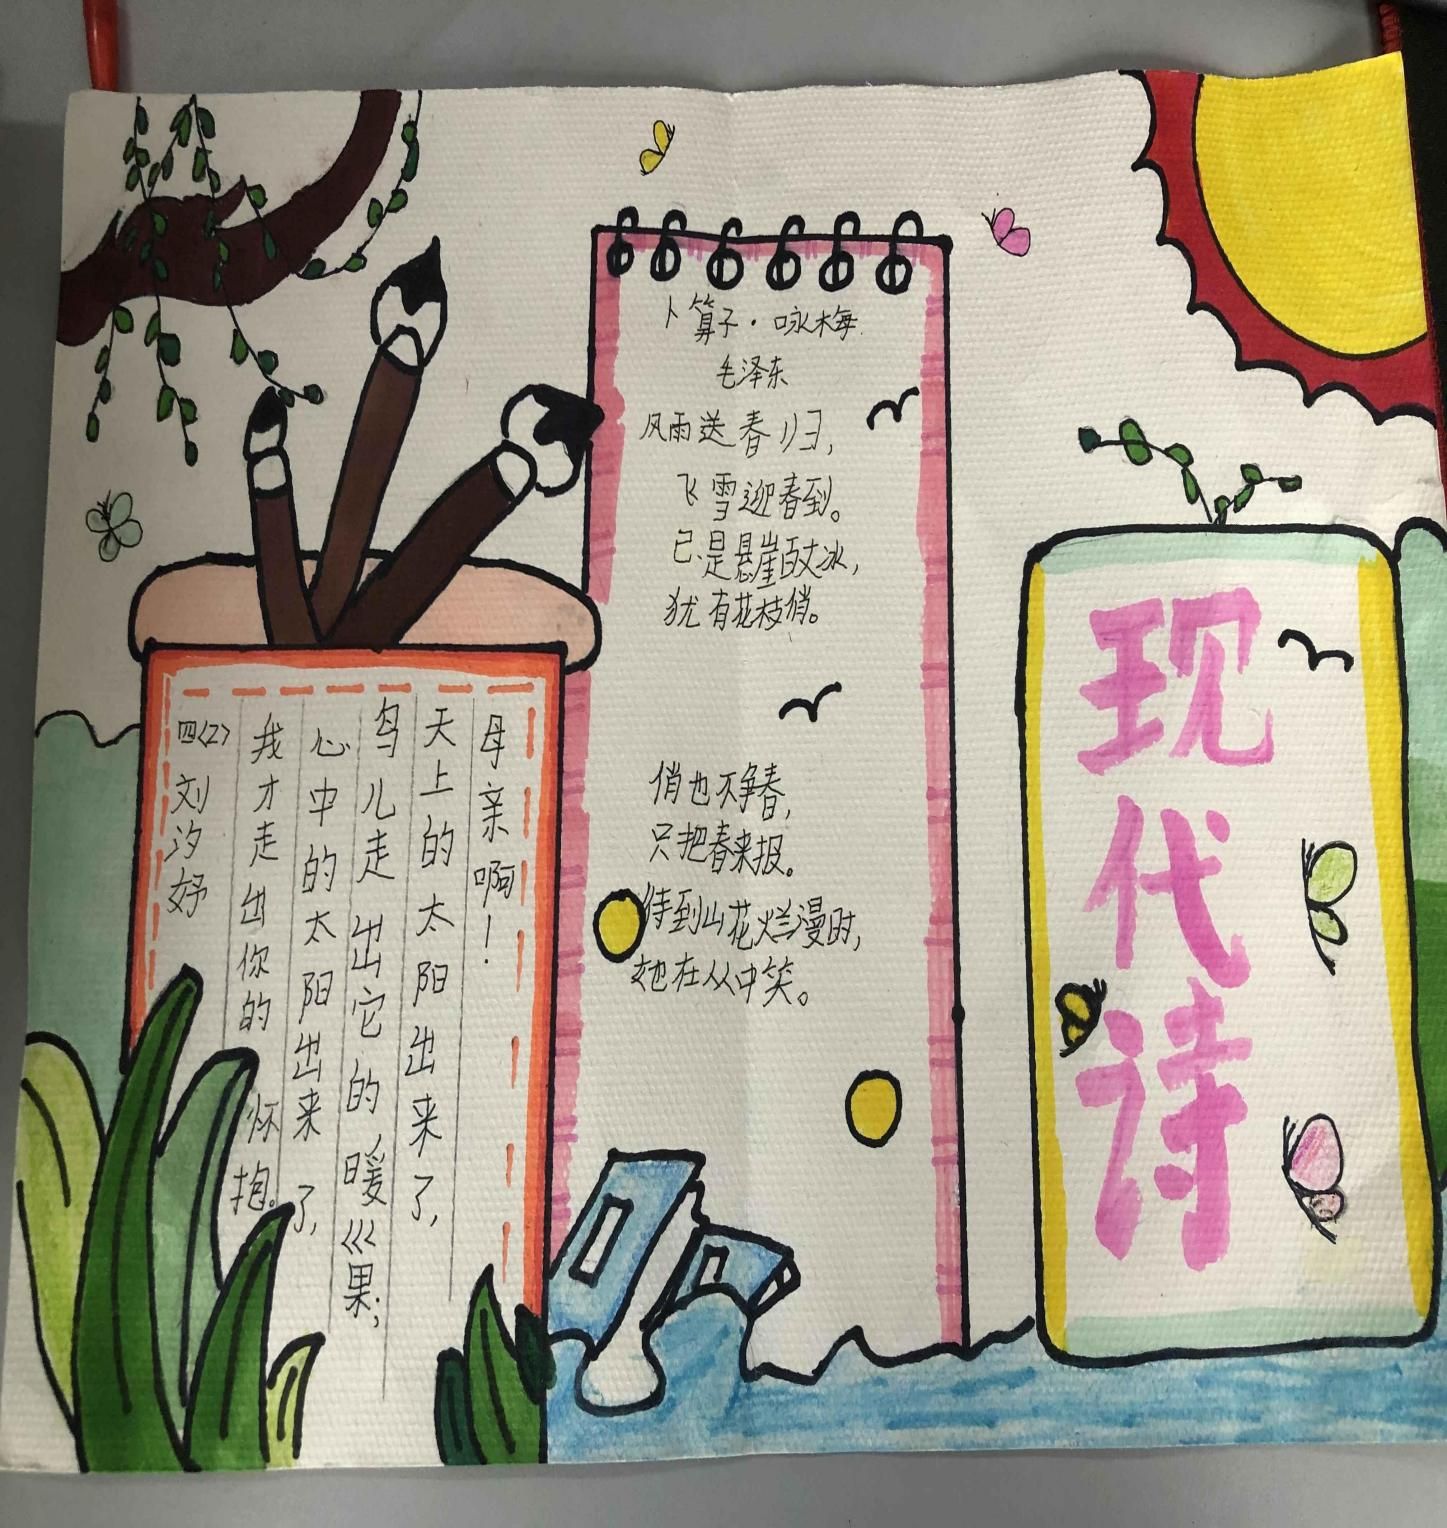 现代诗
卜算子·咏梅
毛泽东
风雨送春归,
飞雪迎春到。
已是悬崖百丈冰,
犹有花枝俏。
俏也不争春,
只把春来报。
待到山花烂漫时,
她在丛中笑。
母亲啊!
天上的太阳出来了,
鸟儿走出它的暖巢;
心中的太阳出来了,
我才走出你的怀抱。
四(2)刘汐妤